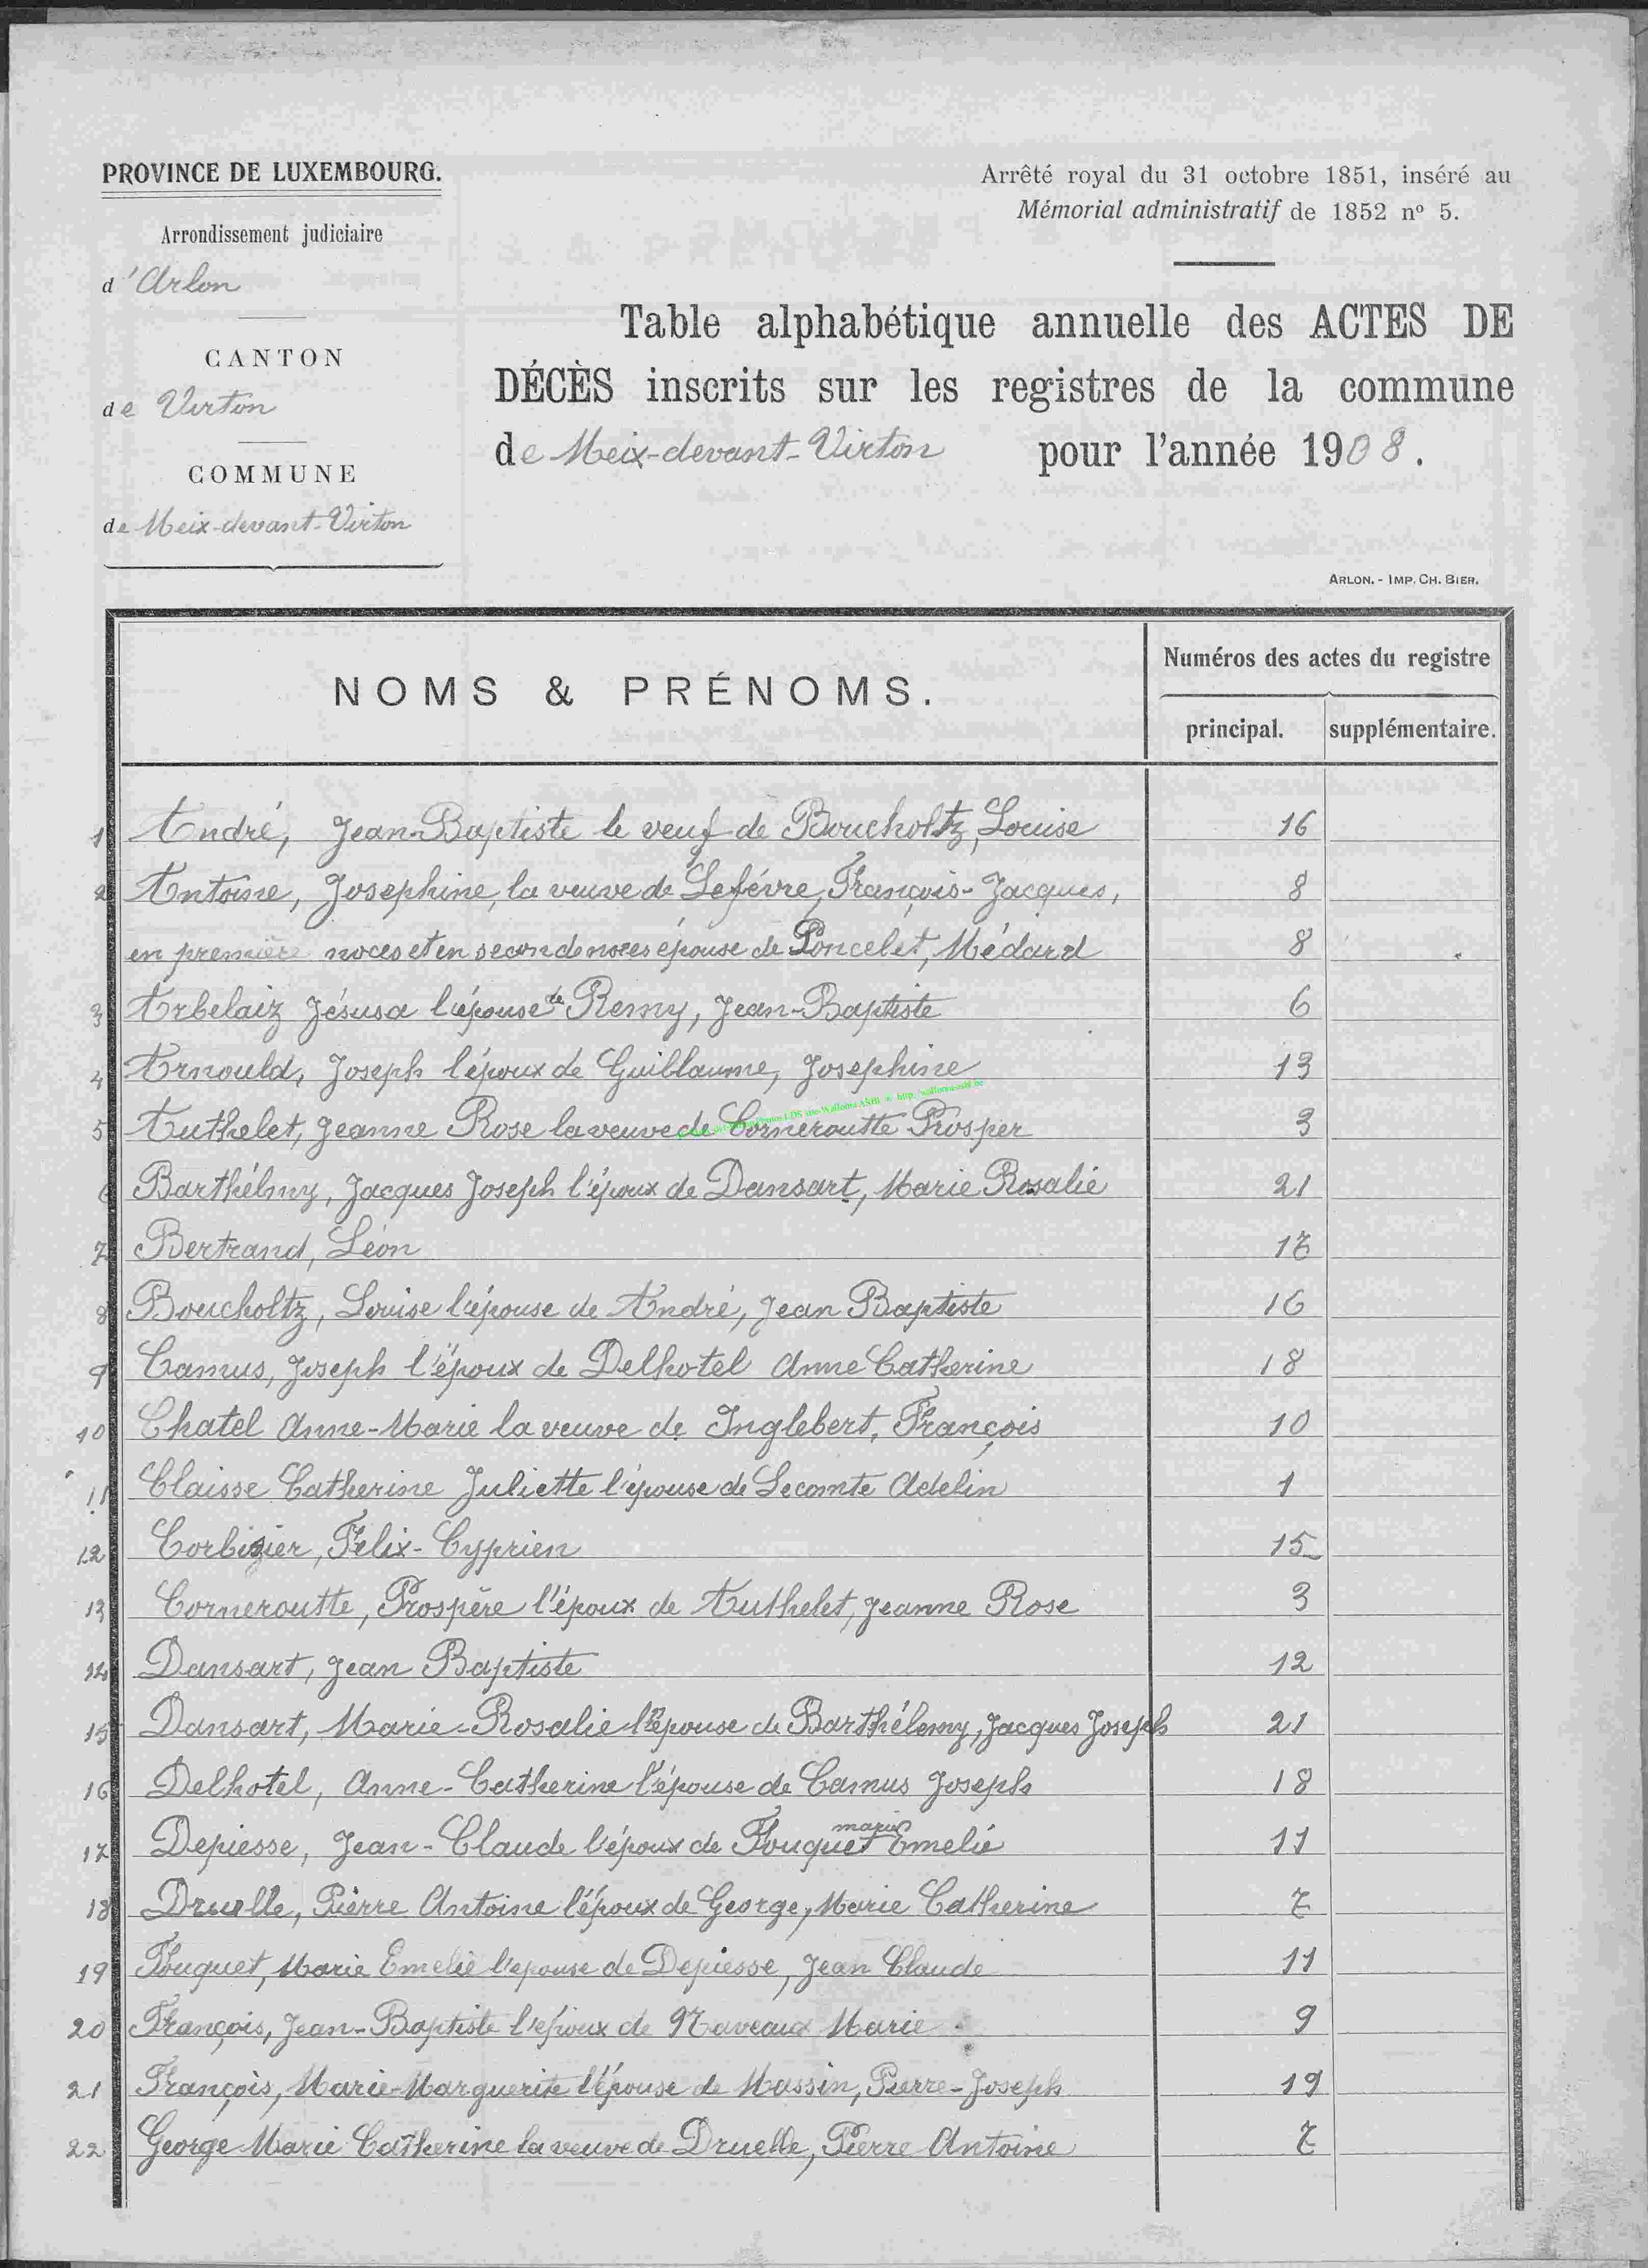 PROVINCE DE LUXEMBOURG.
Arrondissement judiciaire
d'Arlon
CANTON
de Virton
COMMUNE
de Meix-devant-Virton
Arrêté royal du 31 octobre 1851, inséré au
Mémorial administratif de 1852 nº 5.
Table alphabétique annuelle des ACTES DE
DÉCÈS inscrits sur les registres de la commune
de Meix-devant-Virton pour l'année 1908.
ARLON. - IMP. CH. BIER.
NOMS & PRÉNOMS.
Numéros des actes du registre
principal. supplémentaire.
1 André, Jean-Baptiste le veuf de Boucholtz, Louise 16
2 Antoine, Josephine, la veuve de Lefévre, François-Jacques, 8
en première noces et en seconde noces épouse de Poncelet, Médard 8
3 Arbelaiz Jésusa l'épouse de Remy, Jean-Baptiste 6
4 Arnould, Joseph l'époux de Guillaume, Josephine 13
5 Authelet, Jeanne Rose la veuve de Corneroutte Prosper 3
6 Barthélmy, Jacques Joseph l'époux de Dansart, Marie Rosalie 21
7 Bertrand, Léon 17
8 Boucholtz, Louise l'épouse de André, Jean Baptiste 16
9 Camus, Joseph l'époux de Delhotel Anne Catherine 18
10 Chatel Anne-Marie la veuve de Inglebert, François 10
11 Claisse Catherine Juliette l'épouse de Lecomte Adelin 1
12 Corbizier, Félix-Cyprien 15
13 Corneroutte, Prospère l'époux de Authelet, Jeanne Rose 3
14 Dansart, Jean Baptiste 12
15 Dansart, Marie-Rosalie l'épouse de Barthélemy, Jacques Joseph 21
16 Delhotel, Anne-Catherine l'épouse de Camus Joseph 18
17 Depiesse, Jean-Claude l'époux de Fouquet Marie Emelie 11
18 Druelle, Pierre Antoine l'époux de George, Marie Catherine 7
19 Fouquet, Marie Emelie l'epouse de Depiesse, Jean Claude 11
20 François, Jean-Baptiste l'époux de Naveaux Marie 9
21 François, Marie-Marguerite l'épouse de Massin, Pierre-Joseph 19
22 George Marie Catherine la veuve de Druelle, Pierre Antoine 7